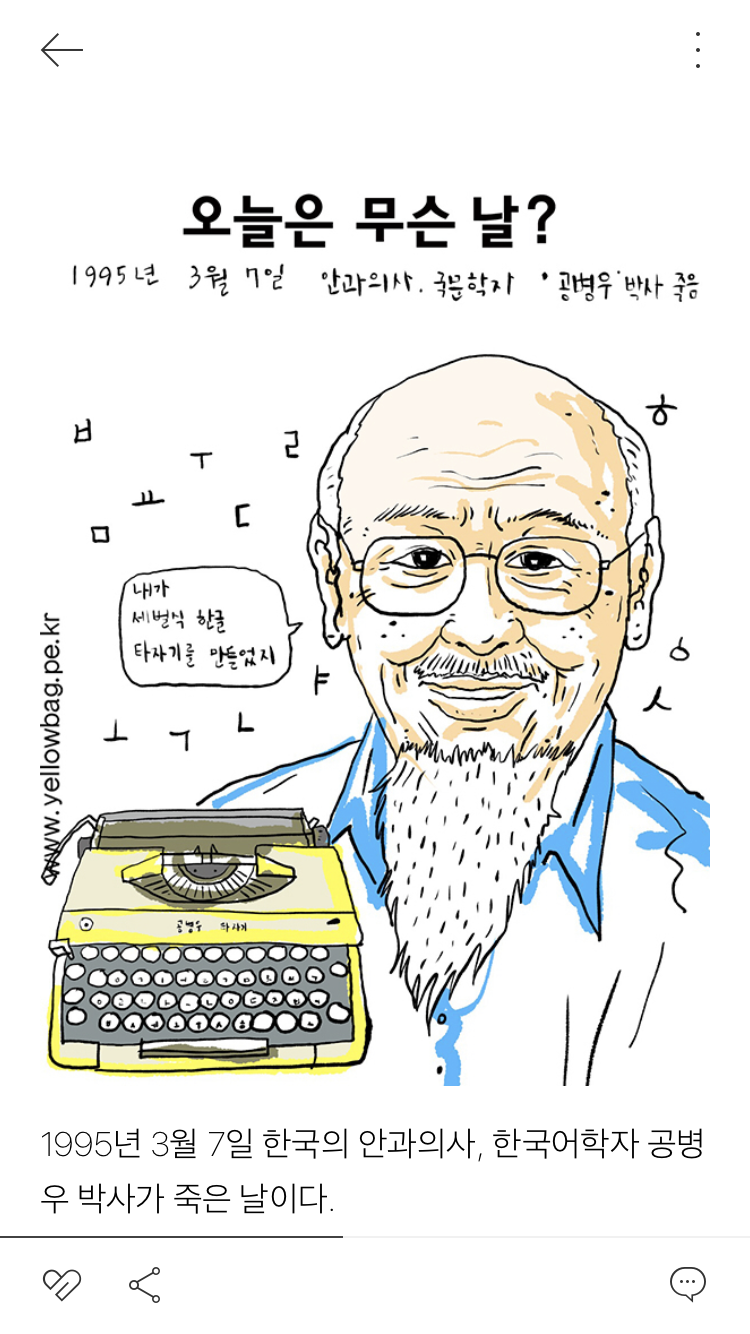 오늘은 무슨 날?
1995년 3월 7일 안과의사. 국문학자 '공병우' 박사 죽음
ㅎ
ㅂ
ㅜ
ㄹ
ㅛ
ㅁ
ㄷ
내가
세벌식 한글
타자기를 만들었지
ㅑ
ㅇ
ㅅ
ㅗ
ㄱ
ㄴ
www.yellowbag.pe.kr
공병우 타자기
1995년 3월 7일 한국의 안과의사, 한국어학자 공병
우 박사가 죽은 날이다.